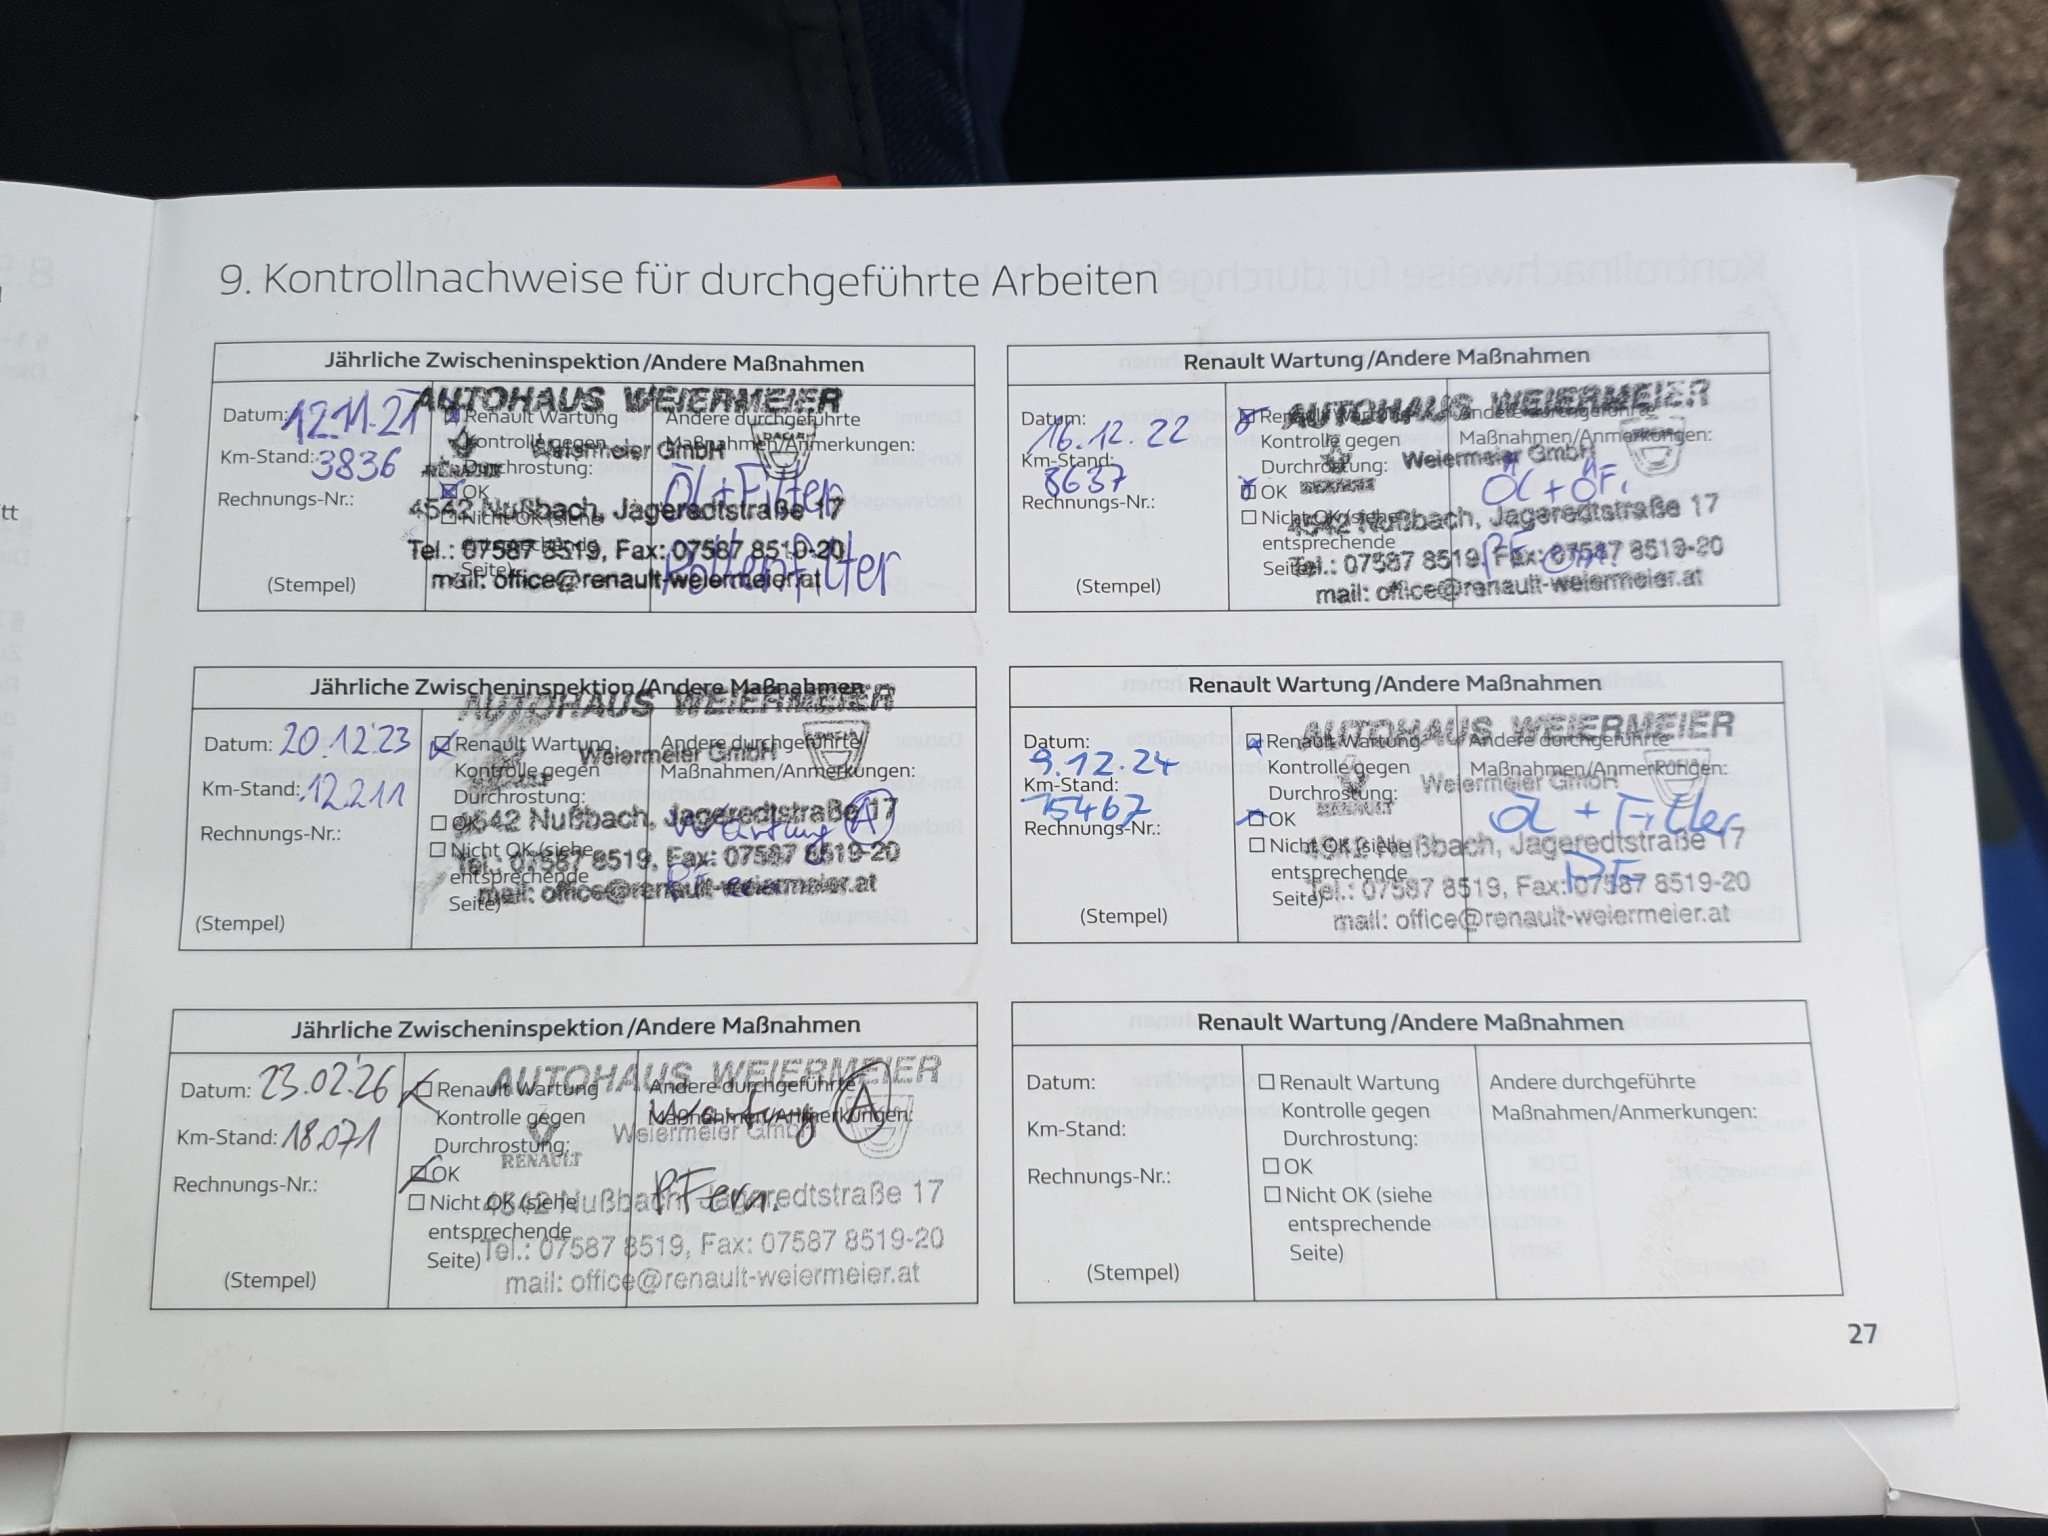 9. Kontrollnachweise für durchgeführte Arbeiten
Jährliche Zwischeninspektion/Andere Maßnahmen
Datum: 12.11.21
Km-Stand: 3836
Rechnungs-Nr.:
(Stempel)
Renault Wartung
Kontrolle gegen
Durchrostung:
OK
Nicht OK (siehe
entsprechende
Seite)
Andere durchgeführte
Maßnahmen/Anmerkungen:
Öl + Filter
Pollenfilter
AUTOHAUS WEIERMEIER
Weiermeier GmbH
RENAULT
DACIA
4542 Nußbach, Jageredtstraße 17
Tel.: 07587 8519, Fax: 07587 8519-20
mail: office@renault-weiermeier.at
Renault Wartung/Andere Maßnahmen
Datum: 16.12.22
Km-Stand: 8637
Rechnungs-Nr.:
(Stempel)
Renault Wartung
Kontrolle gegen
Durchrostung:
OK
Nicht OK (siehe
entsprechende
Seite)
Andere durchgeführte
Maßnahmen/Anmerkungen:
Öl + ÖF.
AUTOHAUS WEIERMEIER
Weiermeier GmbH
RENAULT
4542 Nußbach, Jageredtstraße 17
Tel.: 07587 8519, Fax: 07587 8519-20
mail: office@renault-weiermeier.at
Jährliche Zwischeninspektion/Andere Maßnahmen
Datum: 20.12.23
Km-Stand: 12.211
Rechnungs-Nr.:
(Stempel)
Renault Wartung
Kontrolle gegen
Durchrostung:
OK
Nicht OK (siehe
entsprechende
Seite)
Andere durchgeführte
Maßnahmen/Anmerkungen:
Wartung A
AUTOHAUS WEIERMEIER
Weiermeier GmbH
DACIA
4542 Nußbach, Jageredtstraße 17
Tel.: 07587 8519, Fax: 07587 8519-20
mail: office@renault-weiermeier.at
Renault Wartung/Andere Maßnahmen
Datum: 9.12.24
Km-Stand: 15467
Rechnungs-Nr.:
(Stempel)
Renault Wartung
Kontrolle gegen
Durchrostung:
OK
Nicht OK (siehe
entsprechende
Seite)
Andere durchgeführte
Maßnahmen/Anmerkungen:
Öl + Filter
PF
AUTOHAUS WEIERMEIER
Weiermeier GmbH
RENAULT
DACIA
4542 Nußbach, Jageredtstraße 17
Tel.: 07587 8519, Fax: 07587 8519-20
mail: office@renault-weiermeier.at
Jährliche Zwischeninspektion/Andere Maßnahmen
Datum: 23.02.26
Km-Stand: 18.071
Rechnungs-Nr.:
(Stempel)
Renault Wartung
Kontrolle gegen
Durchrostung:
OK
Nicht OK (siehe
entsprechende
Seite)
Andere durchgeführte
Maßnahmen/Anmerkungen:
Wartung A
PF ern.
AUTOHAUS WEIERMEIER
Weiermeier GmbH
RENAULT
4542 Nußbach, Jageredtstraße 17
Tel.: 07587 8519, Fax: 07587 8519-20
mail: office@renault-weiermeier.at
Renault Wartung/Andere Maßnahmen
Datum:
Km-Stand:
Rechnungs-Nr.:
(Stempel)
Renault Wartung
Kontrolle gegen
Durchrostung:
OK
Nicht OK (siehe
entsprechende
Seite)
Andere durchgeführte
Maßnahmen/Anmerkungen:
27